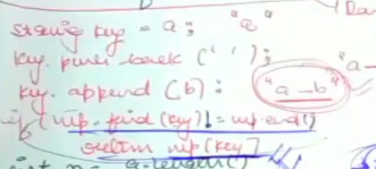 string key = a; "a"
key. push_back (' ');
key. append (b); "a_b"
"a_
if (mp.find(key) != mp.end()
return mp[key]
int n = a.length()